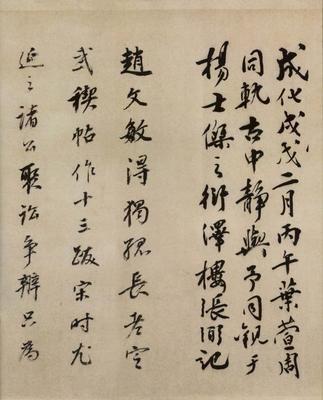 成化戊戌二月丙午葉萱周
同軌古中靜與予同觀于
楊士傑之衍澤樓張淵記
趙文敏得獨孤長老定
武禊帖作十三跋宋時尤
延之諸公聚訟爭辨只為